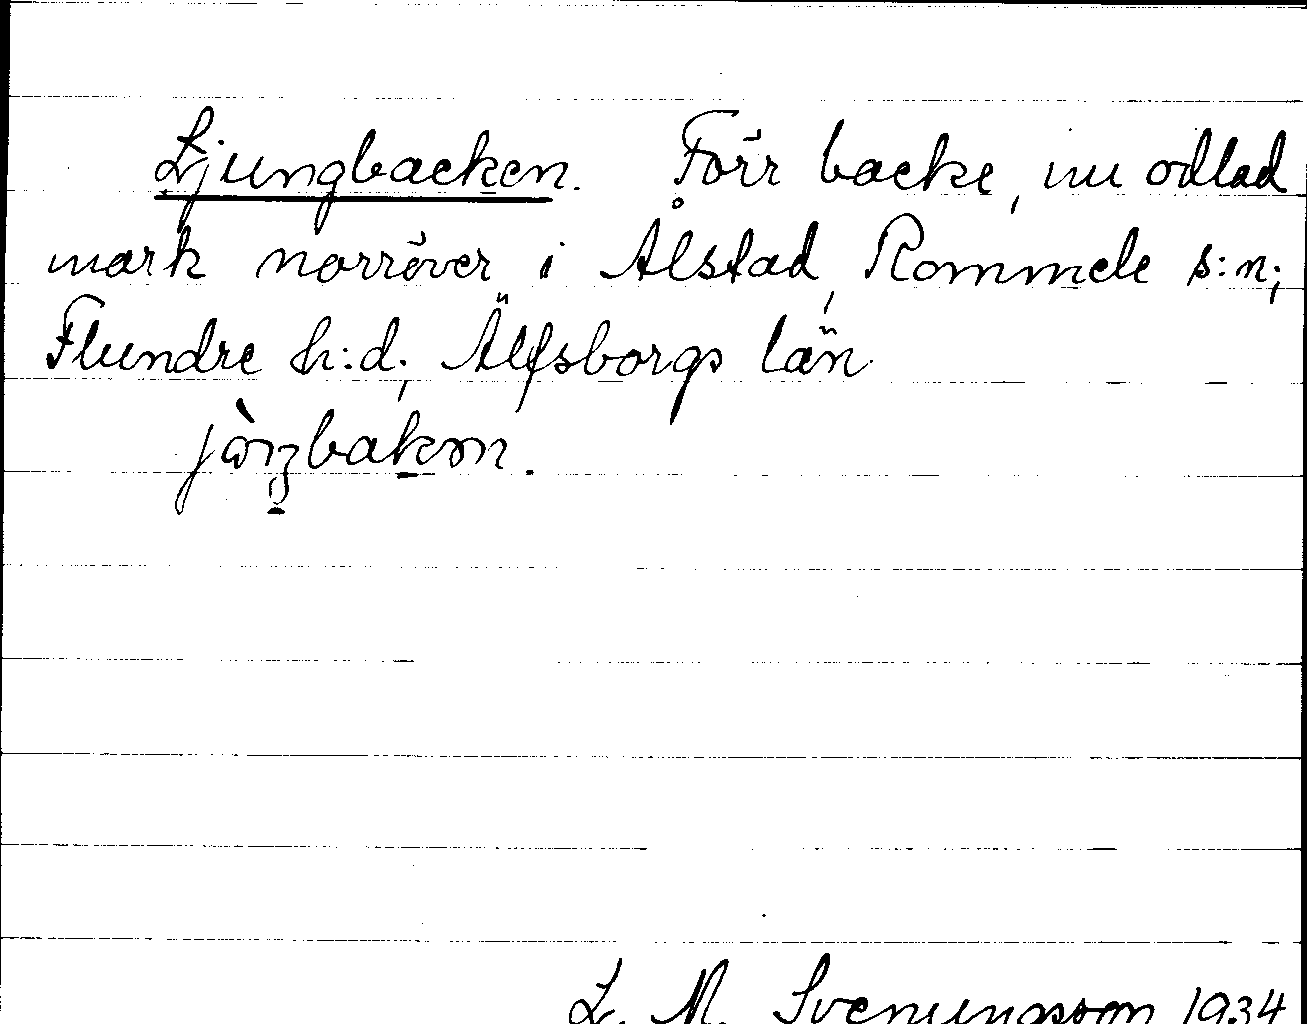 Ljungbacken. Förr backe, nu odlad
mark norröver i Ålstad, Rommele s:n;
Flundre h:d; Älfsborgs län
jòŋbakən.
L. M. Svenungsson 1934